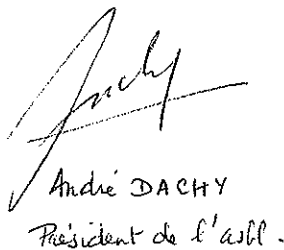 André DACHY
Président de l'asbl.